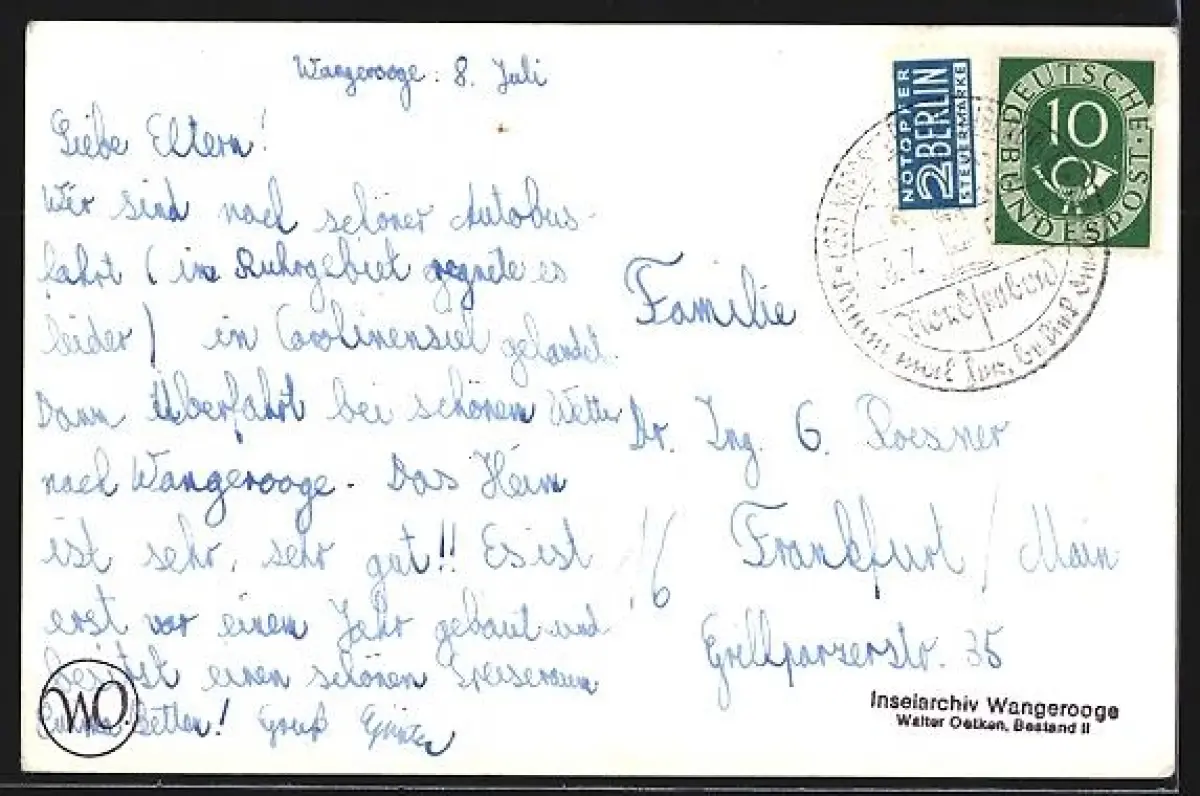 Wangerooge: 8. Juli
Liebe Eltern!
Wir sind nach schöner Autobus-
fahrt (im Ruhrgebiet regnete es
leider) in Carolinensiel gelandet.
Dann Überfahrt bei schönem Wetter
nach Wangerooge. Das Heim
ist sehr, sehr gut!! Es ist
erst vor einem Jahr gebaut und
besitzt einen schönen Speiseraum
Betten! Gruß Günter
WO.
NOTOPFER
2 BERLIN
STEUERMARKE
DEUTSCHE BUNDESPOST
10
8.7.
Familie
Dr. Ing. G. Roesner
16 Frankfurt / Main
Grillparzerstr. 35
Inselarchiv Wangerooge
Walter Oetken, Bestand II